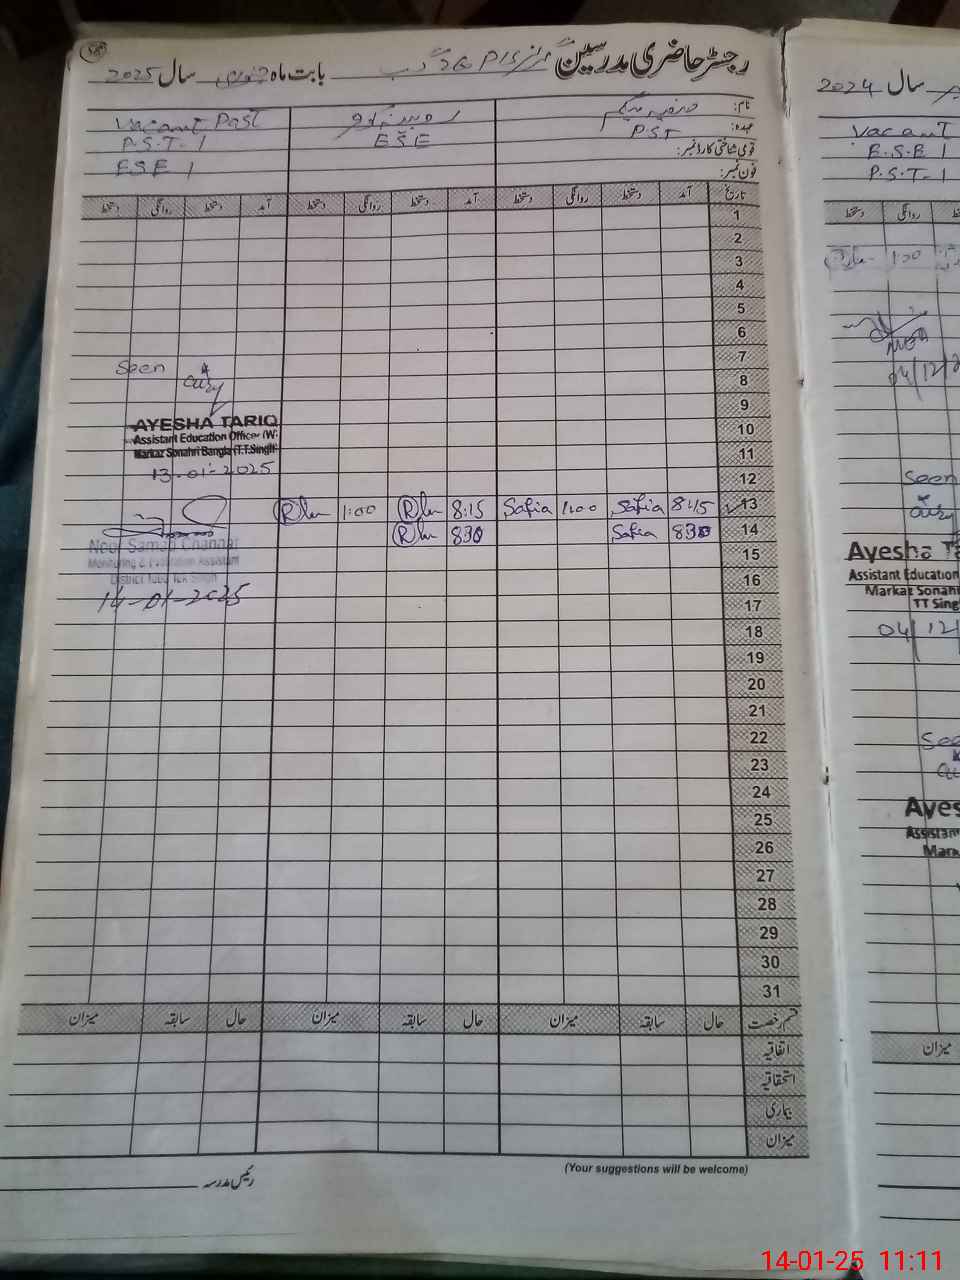 رجسٹر حاضری مدرسین
بابت ماہ جنوری سال 2025
نام:
عہدہ: PST ESE
قومی شناختی کارڈ نمبر:
فون نمبر:
Vacant Post
P.S.T. 1
E.S.E 1
تاریخ آمد دستخط روانگی دستخط آمد دستخط روانگی دستخط آمد دستخط روانگی دستخط
1
2
3
4
5
6
7
8
9
10
11
12
13 8:15 Safia 1:00 Safia 8:15 1:00
14 830 Safia 830
15
16
17
18
19
20
21
22
23
24
25
26
27
28
29
30
31
Seen
AYESHA TARIQ
Assistant Education Officer (W)
Markaz Sonahri Bangla (T.T.Singh)
13-01-2025
Noor Samad Channar
Monitoring & Evaluation Assistant
District Toba Tek Singh
14-01-2025
قسم رخصت حال سابقہ میزان حال سابقہ میزان حال سابقہ میزان
اتفاقیہ
استحقاقیہ
بیماری
میزان
رئیس مدرسہ
(Your suggestions will be welcome)
سال 2024
Vacant
E.S.E 1
P.S.T-1
روانگی دستخط
1:00
MEA
04/12/2
Seen
Ayesha Ta
Assistant Education
Markaz Sonah
TT Sing
04/12/
See
Ayes
Assistan
Mark
میزان
14-01-25 11:11